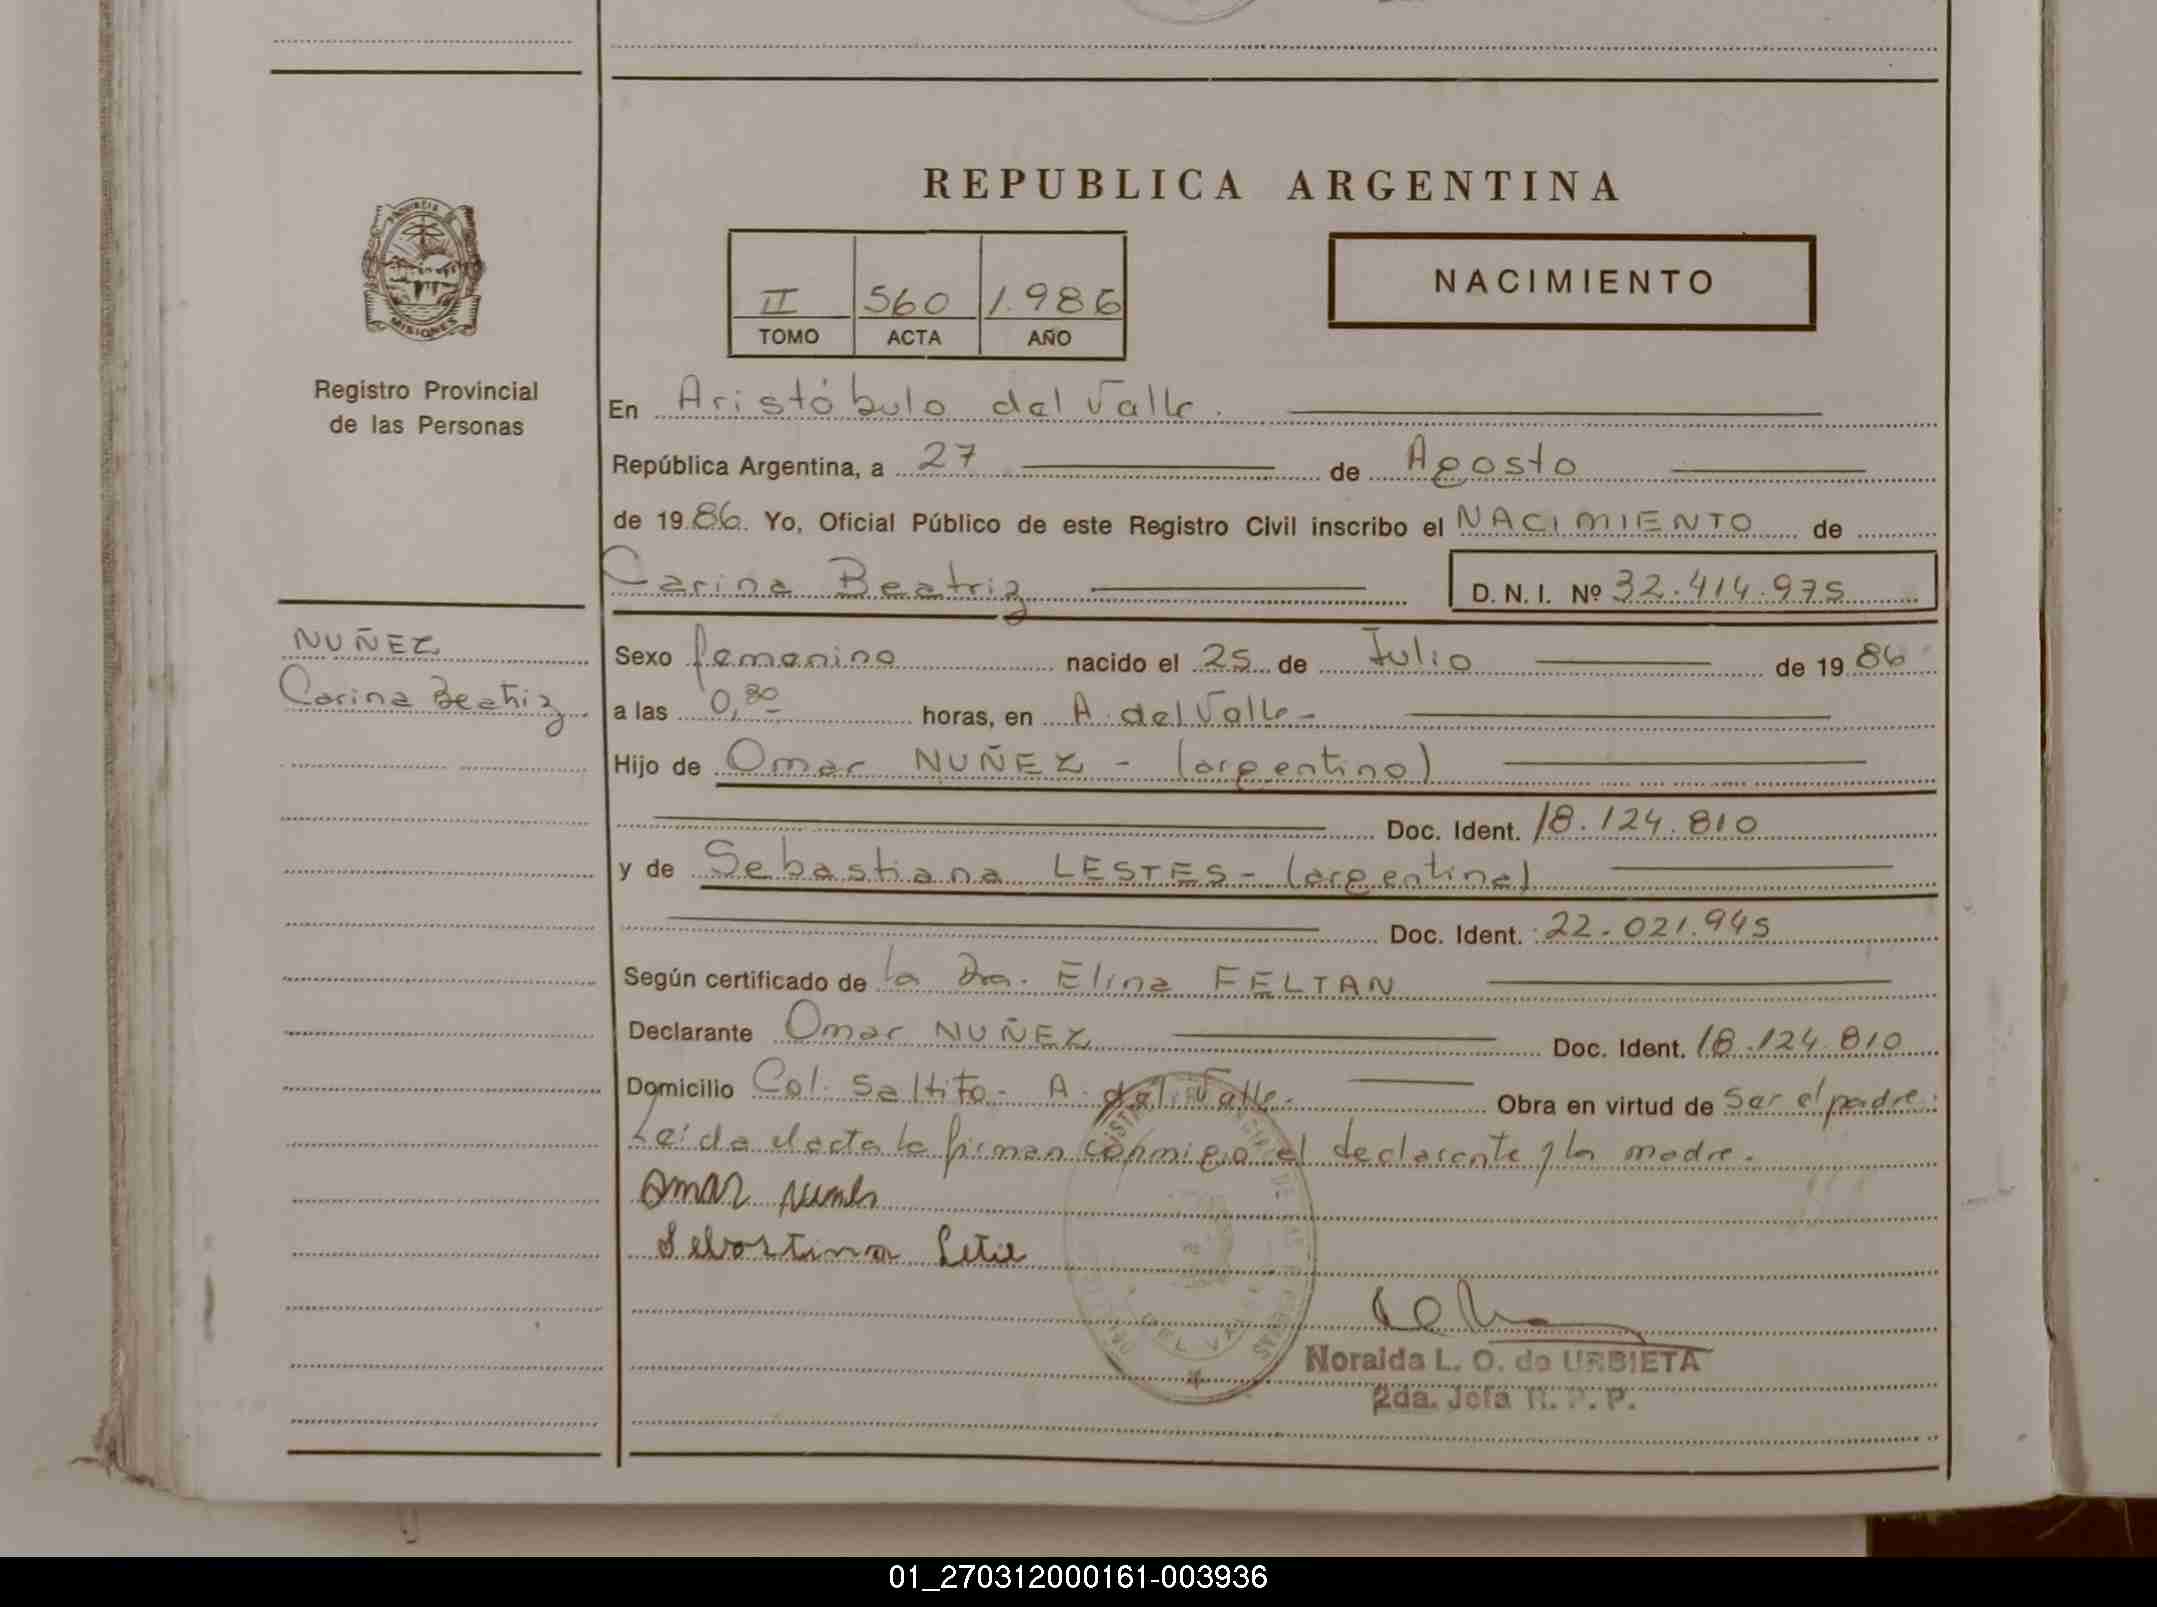 REPUBLICA ARGENTINA
PROVINCIA DE
MISIONES
Registro Provincial
de las Personas
II 560 1.986
TOMO ACTA AÑO
NACIMIENTO
En Aristóbulo del Valle.
República Argentina, a 27 de Agosto
de 1986. Yo, Oficial Público de este Registro Civil inscribo el NACIMIENTO de
Carina Beatriz D. N. I. Nº 32.414.975
NUÑEZ
Carina Beatriz
Sexo femenino nacido el 25 de Julio de 1986
a las 0,30 horas, en A. del Valle-
Hijo de Omar NUÑEZ - (argentino)
Doc. Ident. 18.124.810
y de Sebastiana LESTES- (argentina)
Doc. Ident. 22.021.945
Según certificado de la Dra. Elina FELTAN
Declarante Omar NUÑEZ Doc. Ident. 18.124.810
Domicilio Col. Saltito- A. del Valle- Obra en virtud de Ser el padre.
Leída el acta la firman conmigo el declarante y la madre.
Omar
Noraida L. O. de URBIETA
2da. Jefa R. P. P.
01_270312000161-003936